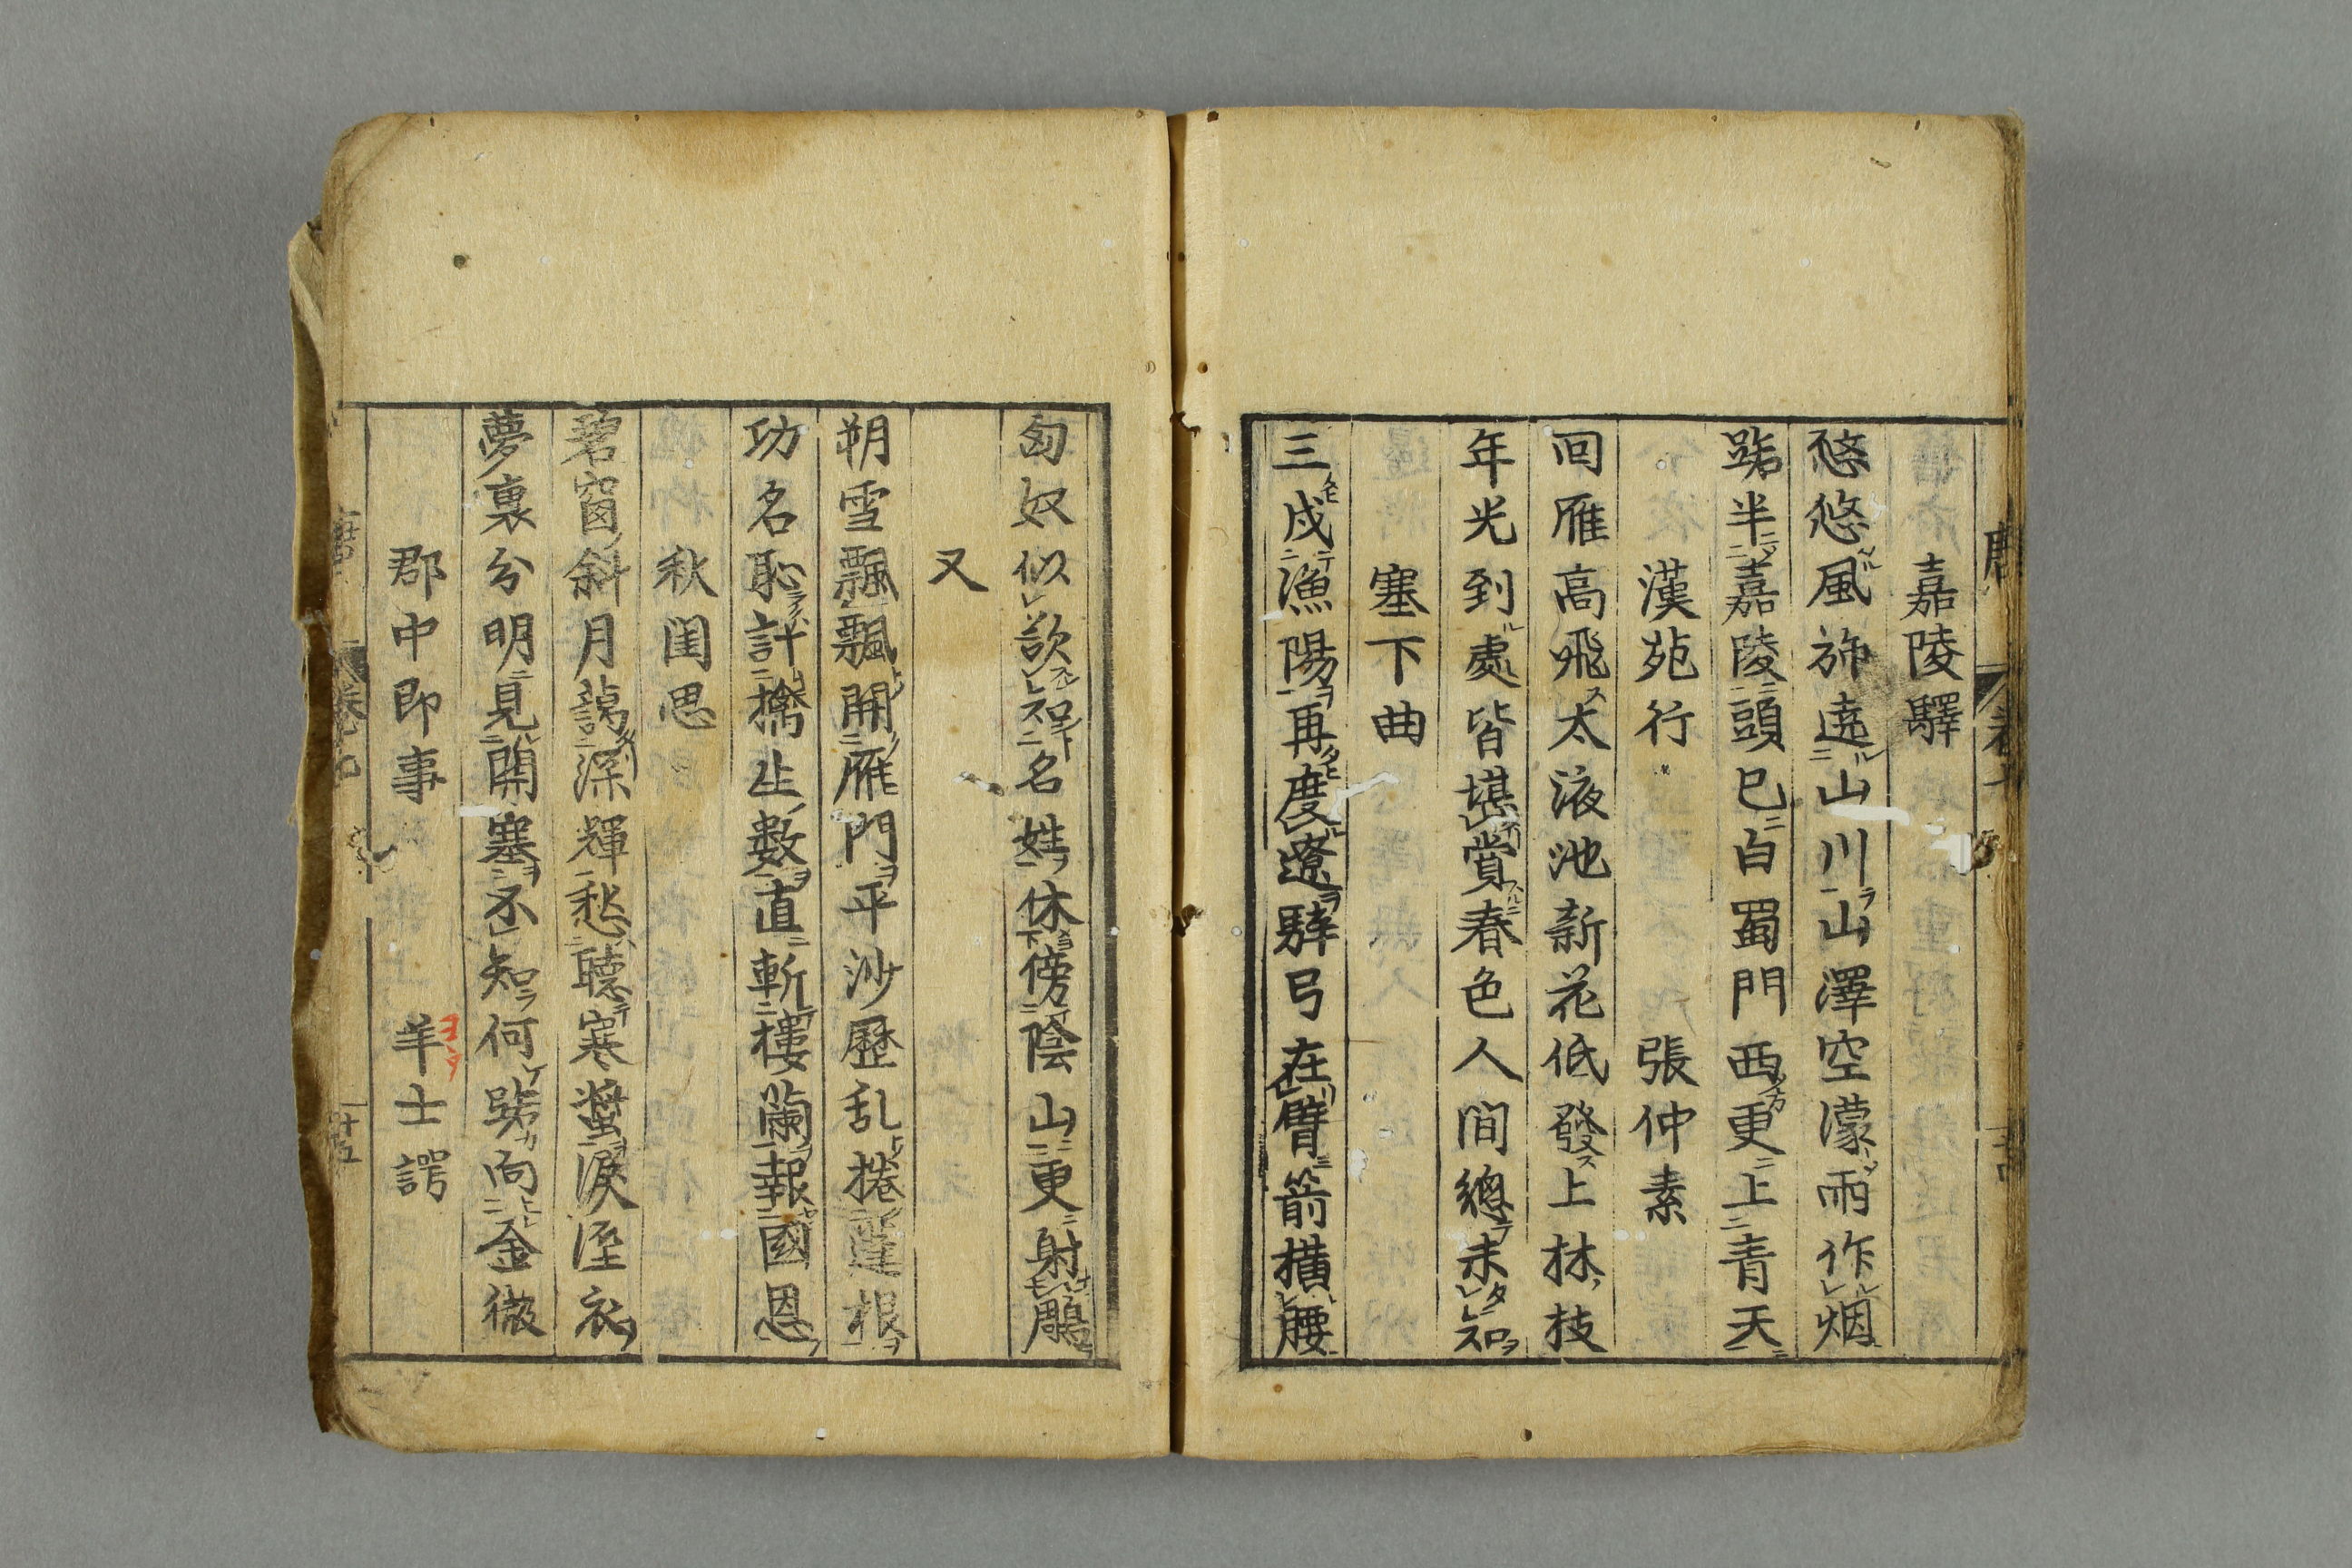 嘉陵驛
悠悠風旆遶山川山澤空濛雨作烟
路半嘉陵頭已白蜀門西更上青天
漢苑行　張仲素
回雁高飛太液池新花低發上林枝
年光到處皆堪賞春色人間總未知
塞下曲
三戍漁陽再度遼騂弓在臂箭橫腰
匈奴似欲知名姓休傍陰山更射鵰
又
朔雪飄飄開雁門平沙歷乱捲蓬根
功名恥計擒生數直斬樓蘭報國恩
秋閨思
碧窗斜月藹深輝愁聽寒螿淚溼衣
夢裏分明見關塞不知何路向金微
郡中即事　羊士諤